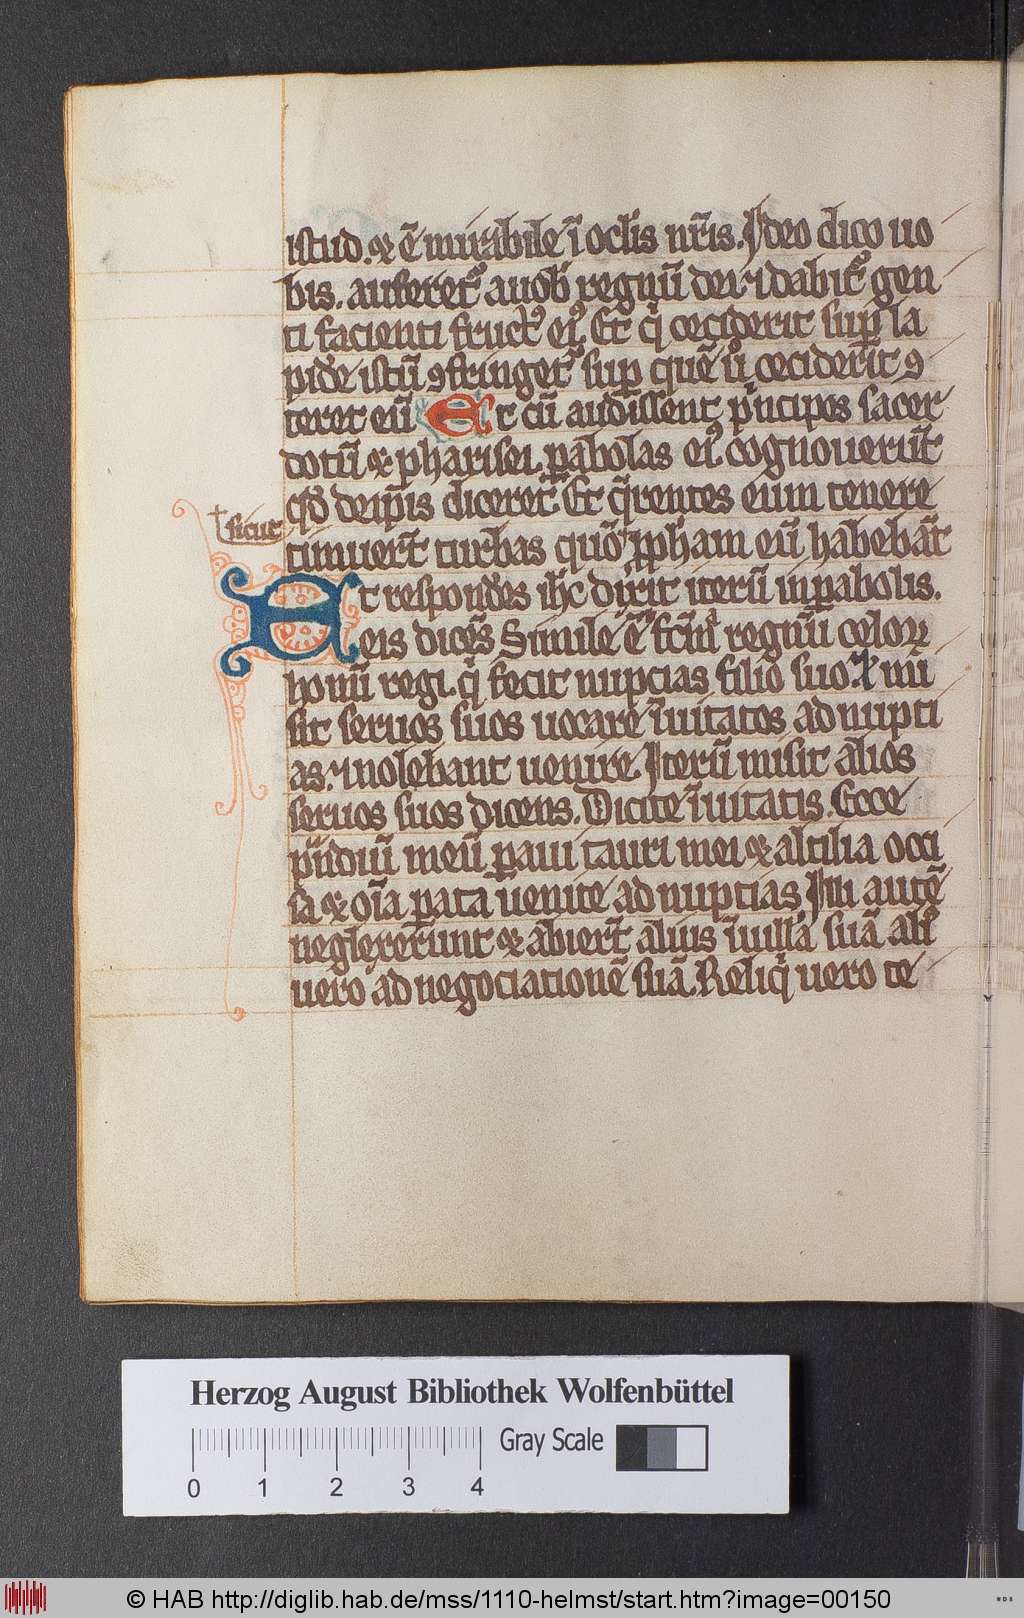 istud. ⁊ ē mirabile ī oclis nr̄is. Ideo dico uo
bis. auferet᷑ a uob̄ regnū dei. ⁊ dabit᷑ gen
ti facienti fruct᷒ ei᷒. Et q̇ ceciderit sup̱ la
pidē istū ꝯfringet᷑ sup̱ quē ū̇ ceciderit ꝯ
teret eū Et cū audissent p̄ncipes sacer
dotū ⁊ pharisei ꝑabolas ei᷒ cognouerūt
qd̄ de ip̄is diceret. Et q̄rentes eum tenere
sicut
timuer̄t turbas quō ꝓpħam eū habebāt
Et respondēs ih̄c dixit iterū in ꝑabolis.
eis dicēs Simile ē fc̄m regnū celoꝝ
homī regi. q̇ fecit nuptias filio suo. ⁊ mi
sit seruos suos uocare īuitatos ad nupti
as. ⁊ nolebant uenire. Iterū misit alios
seruos suos dicens. Dicite īuitatis. Ecce
p̄ndiū meū paraui tauri mei ⁊ altilia occi
sa ⁊ oīa ꝑata uenite ad nuptias. Illi autē
neglexerunt ⁊ abier̄t alius ī uillā suā ali᷒
uero ad negociationē suā. Reliq̇ uero te
Herzog August Bibliothek Wolfenbüttel
0 1 2 3 4 Gray Scale
© HAB http://diglib.hab.de/mss/1110-helmst/start.htm?image=00150